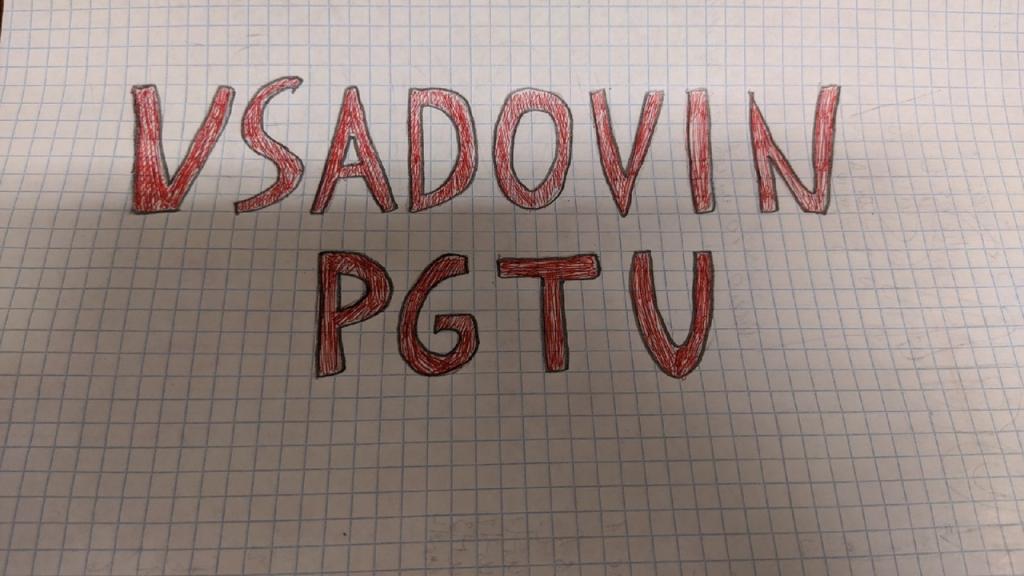 VSADOVIN
PGTU